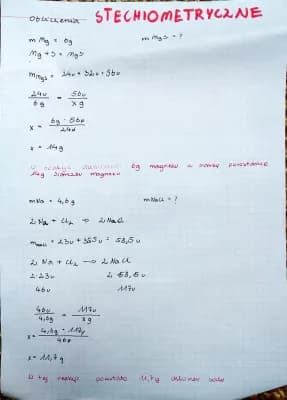 Obliczenia STECHIOMETRYCZNE
m Mg = 6g m MgS = ?
Mg + S = MgS
m MgS = 24u + 32u = 56u
24u / 6g = 56u / x g
x = 6g · 56u / 24u
x = 14g
W reakcji 6g magnezu z siarką powstanie
14g siarczku magnezu
mNa = 4,6g mNaCl = ?
2 Na + Cl₂ → 2 NaCl
m NaCl = 23u + 35,5u = 58,5u
2 Na + Cl₂ → 2 NaCl
2·23u 2·58,5u
46u 117u
46u / 4,6g = 117u / x g
x = 4,6g · 117u / 46u
x = 11,7g
W tej reakcji powstało 11,7g chlorku sodu